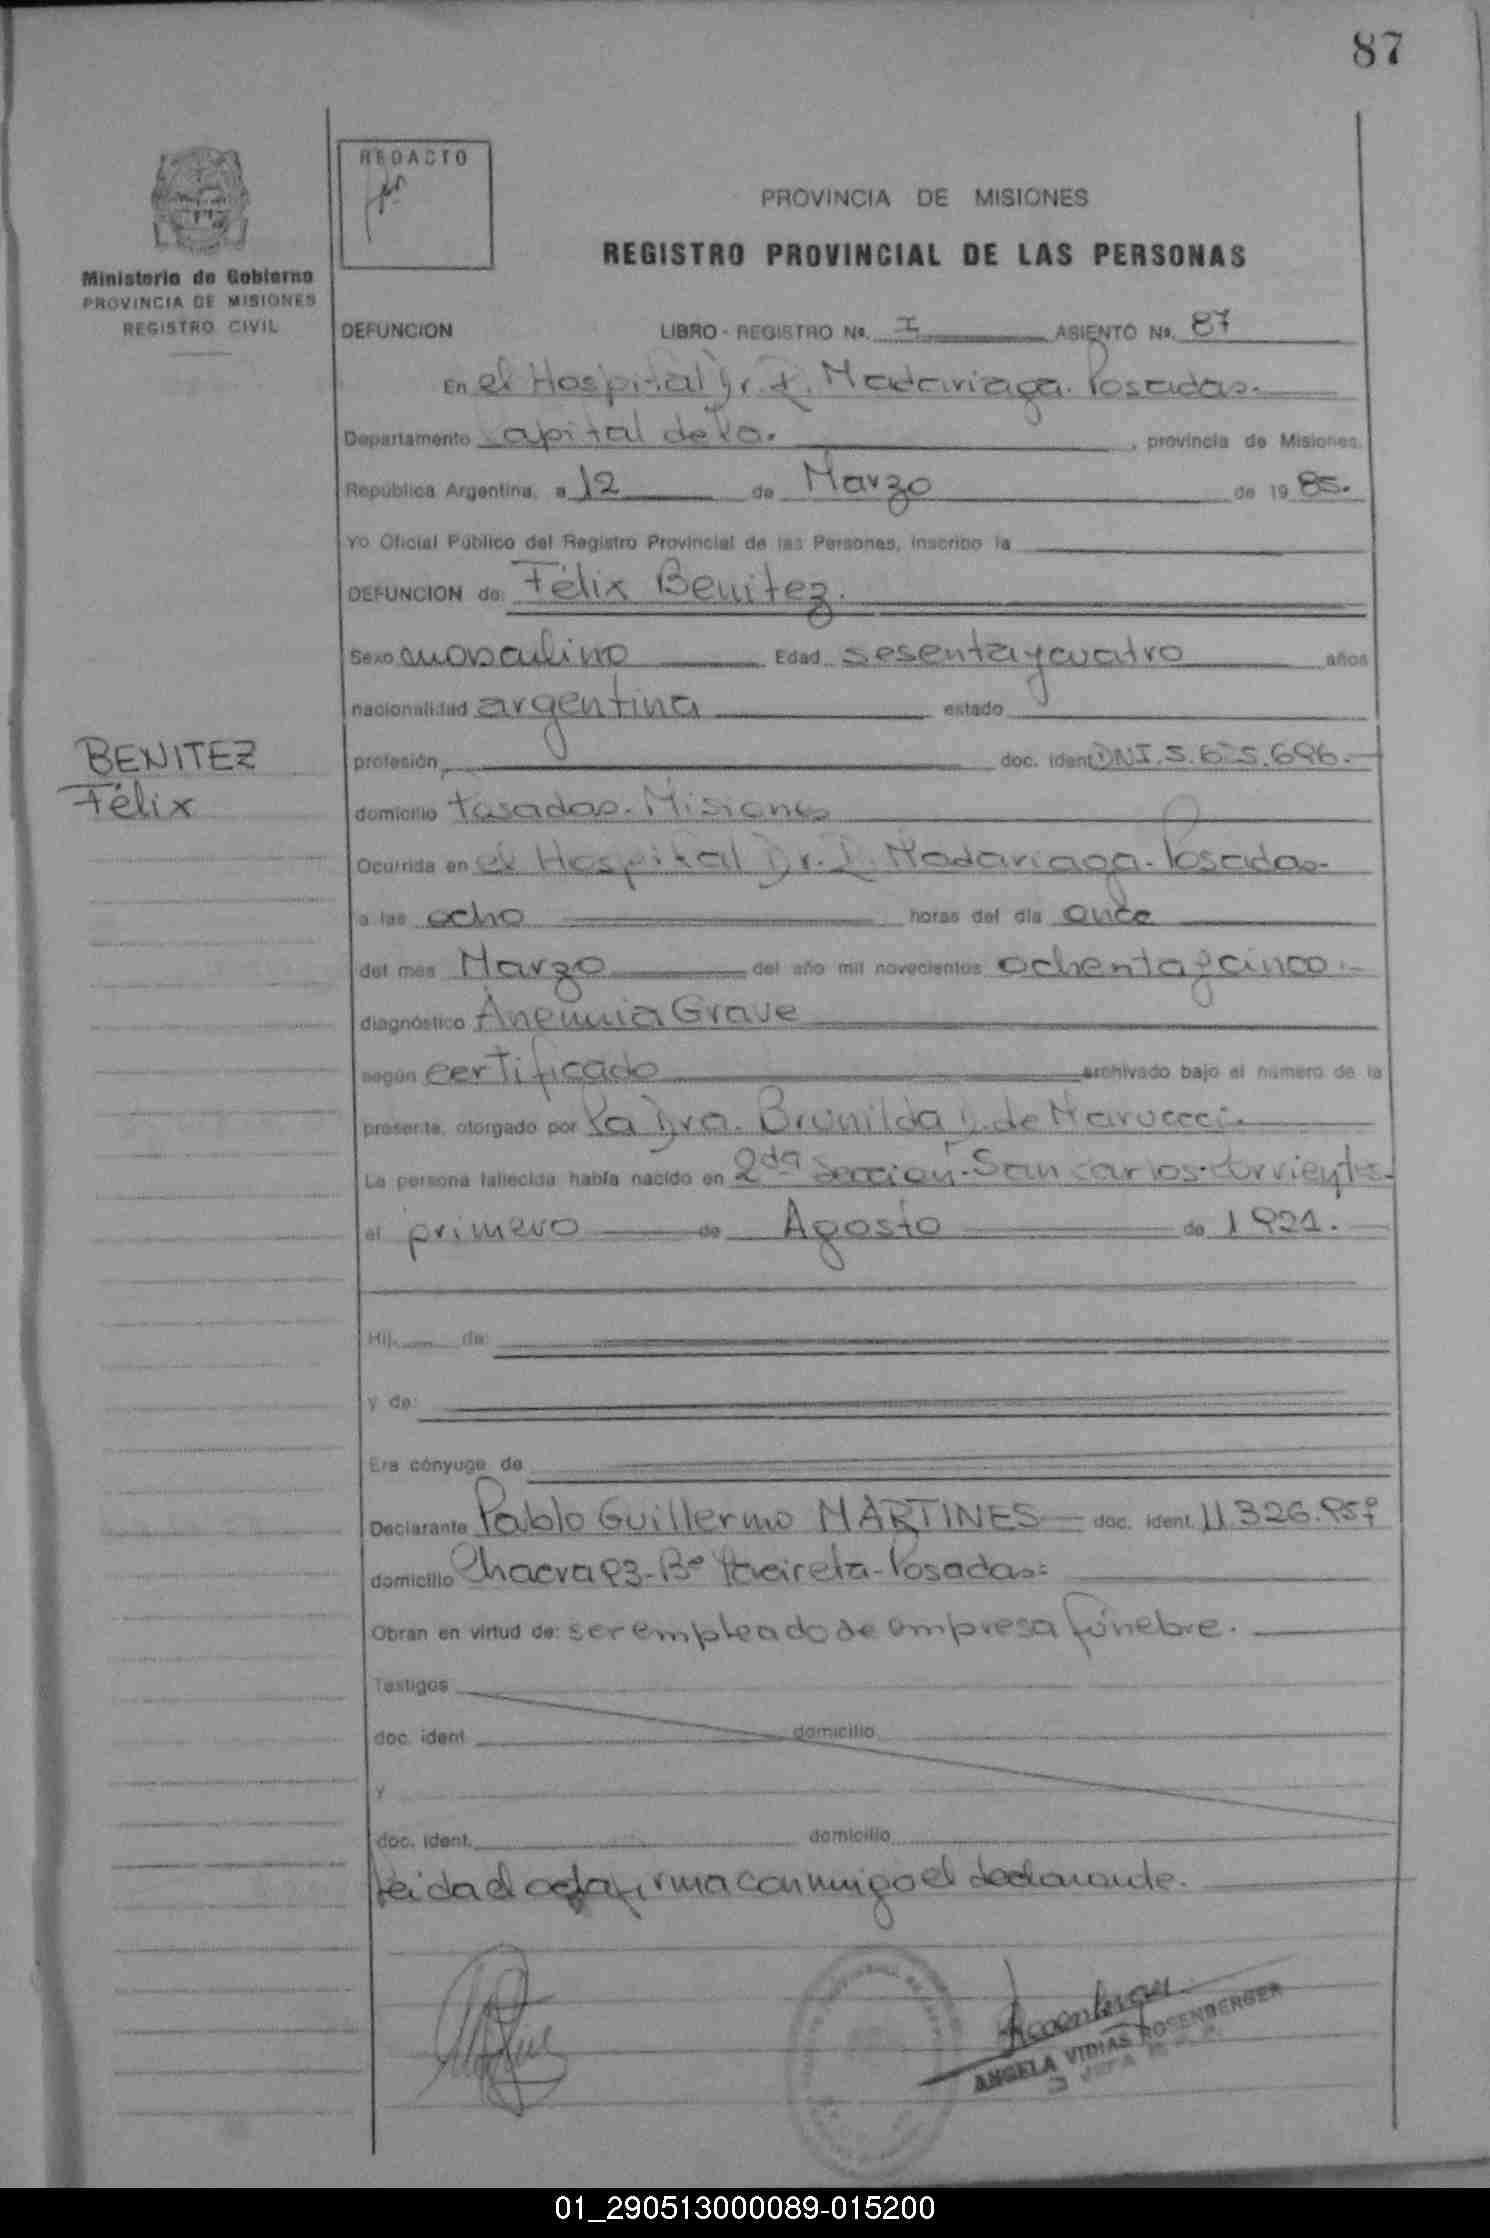 87
REDACTO
PROVINCIA DE MISIONES
REGISTRO PROVINCIAL DE LAS PERSONAS
Ministerio de Gobierno
PROVINCIA DE MISIONES
REGISTRO CIVIL
DEFUNCION LIBRO - REGISTRO No. I ASIENTO No. 87
En el Hospital Dr. R. Madariaga. Posadas.
Departamento capital de la. , provincia de Misiones,
República Argentina, a 12 de Marzo de 19 85.
Yo Oficial Público del Registro Provincial de las Personas, inscribo la
DEFUNCION de: Félix Benitez.
Sexo masculino Edad sesenta y cuatro años
nacionalidad argentina estado
BENITEZ
Félix
profesión doc. ident DNI.
domicilio Posadas. Misiones
Ocurrida en el Hospital Dr. R. Madariaga. Posadas.
a las ocho horas del día once
del mes Marzo del año mil novecientos ochenta y cinco.
diagnóstico Anemia Grave
según certificado archivado bajo el número de la
presente, otorgado por la Dra. Brunilda de Marucci.
La persona fallecida había nacido en 2da Sección. San Carlos. Corrientes.
el primero de Agosto de 1921.
Hij de:
y de:
Era cónyuge de
Declarante Pablo Guillermo MARTINES doc. ident. 11.326.959
domicilio Chacra 93- Bº Posadas:
Obran en virtud de: ser empleado de empresa fúnebre.
Testigos
doc. ident. domicilio
Y
doc. ident. domicilio
Leída el acta firma conmigo el declarante.
Rosenberger
ANGELA VIDIAS ROSENBERGER
JEFA
01_290513000089-015200